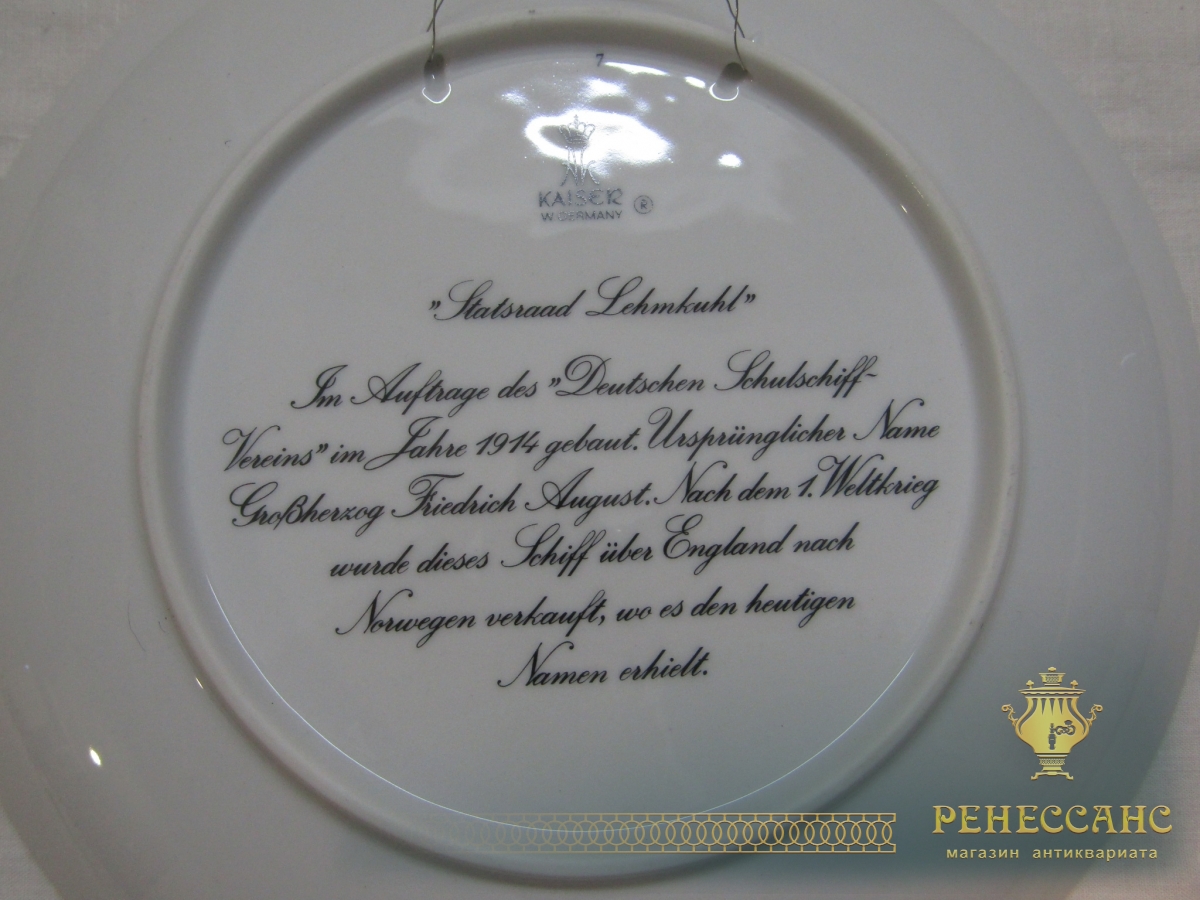 7
KAISER ®
W. GERMANY
"Statsraad Lehmkuhl"
Im Auftrage des "Deutschen Schulschiff-
Vereins" im Jahre 1914 gebaut. Ursprünglicher Name
Großherzog Friedrich August. Nach dem 1. Weltkrieg
wurde dieses Schiff über England nach
Norwegen verkauft, wo es den heutigen
Namen erhielt.
РЕНЕССАНС
магазин антиквариата